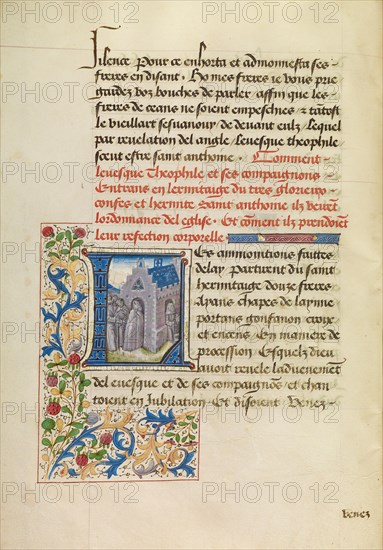 silence Pour ce enhorta et admonnesta ses
freres en disant. Ho mes freres ie vous prie
gardez voz bouches de parler. affin que les
freres de ceans ne soient empeschies & tatost
le vieillart sesvanouy de devant eulz. Lequel
par revelation del angle, levesque theophile
sceut estre saint anthoine. Comment
levesque Theophile et ses compaignons
Entrans en lermitaige du tres glorieux
confes et hermite Saint anthoine ilz virent
lordonnance del eglise. Et coment ilz prendoient
leur refection corporelle
Les ammonitions faittes
delay partirent du saint
hermitaige douze freres
Aians chapes de layne
portans gonfanon croix
et encens. En maniere de
procession Esquelz dieu
avoit revele ladvenement
del evesque et de ses compaignons et chan
toient en Jubilation. Et disoient. Venez.
Venez
PHOTO 12